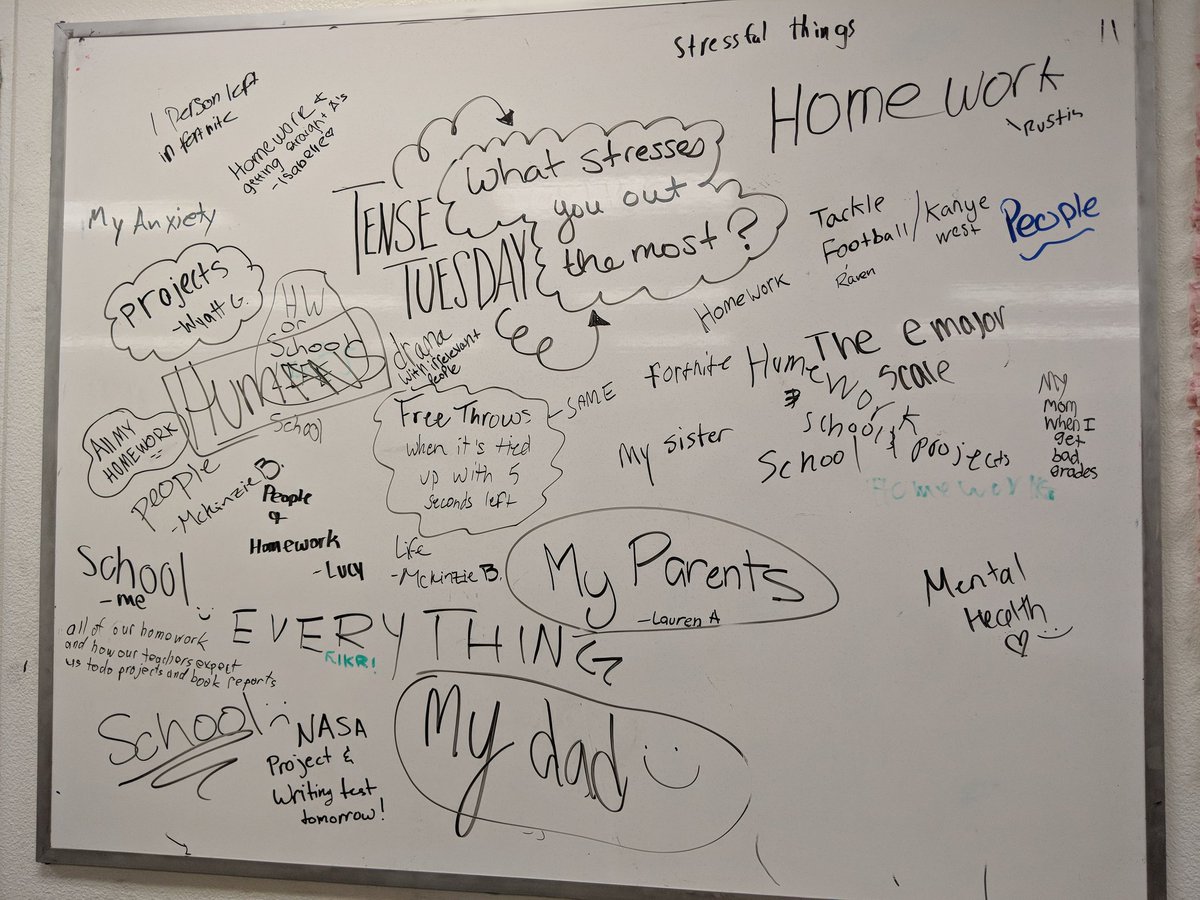 Stressful things
11
1 Person left
in fortnite
Homework &
getting straight A's
-Isabelle
Homework
\Rustin
TENSE
TUESDAY
What stresses
you out
the most?
My Anxiety
Tackle
Football/
Raven
Kanye
west
People
projects
-Wyatt G.
HW
or
School
Humans
School
drama
with irrelevant
people
Homework
All MY
HOMEWORK
Free Throws
when it's tied
up with 5
seconds left
- SAME
fortnite
Homework
The e major
scale
My sister
school
School & projects
Homework
My
mom
when I
get
bad
grades
people
-Mckinzie B.
People
&
Homework
-Lucy
Life
-Mckinzie B.
My Parents
-Lauren A
Mental
Health
School
-me
all of our homework
and how our teachers expect
us to do projects and book reports
EVERYTHING
IKR!
School
NASA
Project &
Writing test
tomorrow!
My dad